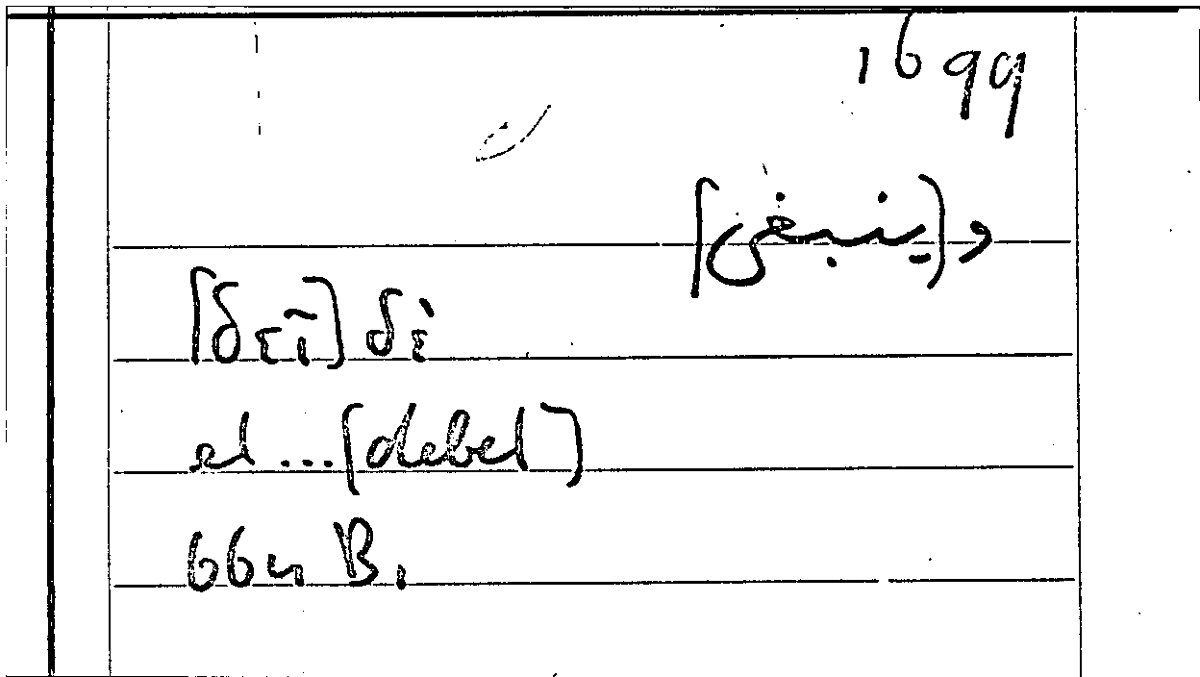 1699
و [ينبغي]
[δεῖ] δὲ
et ... [debet]
664 B1